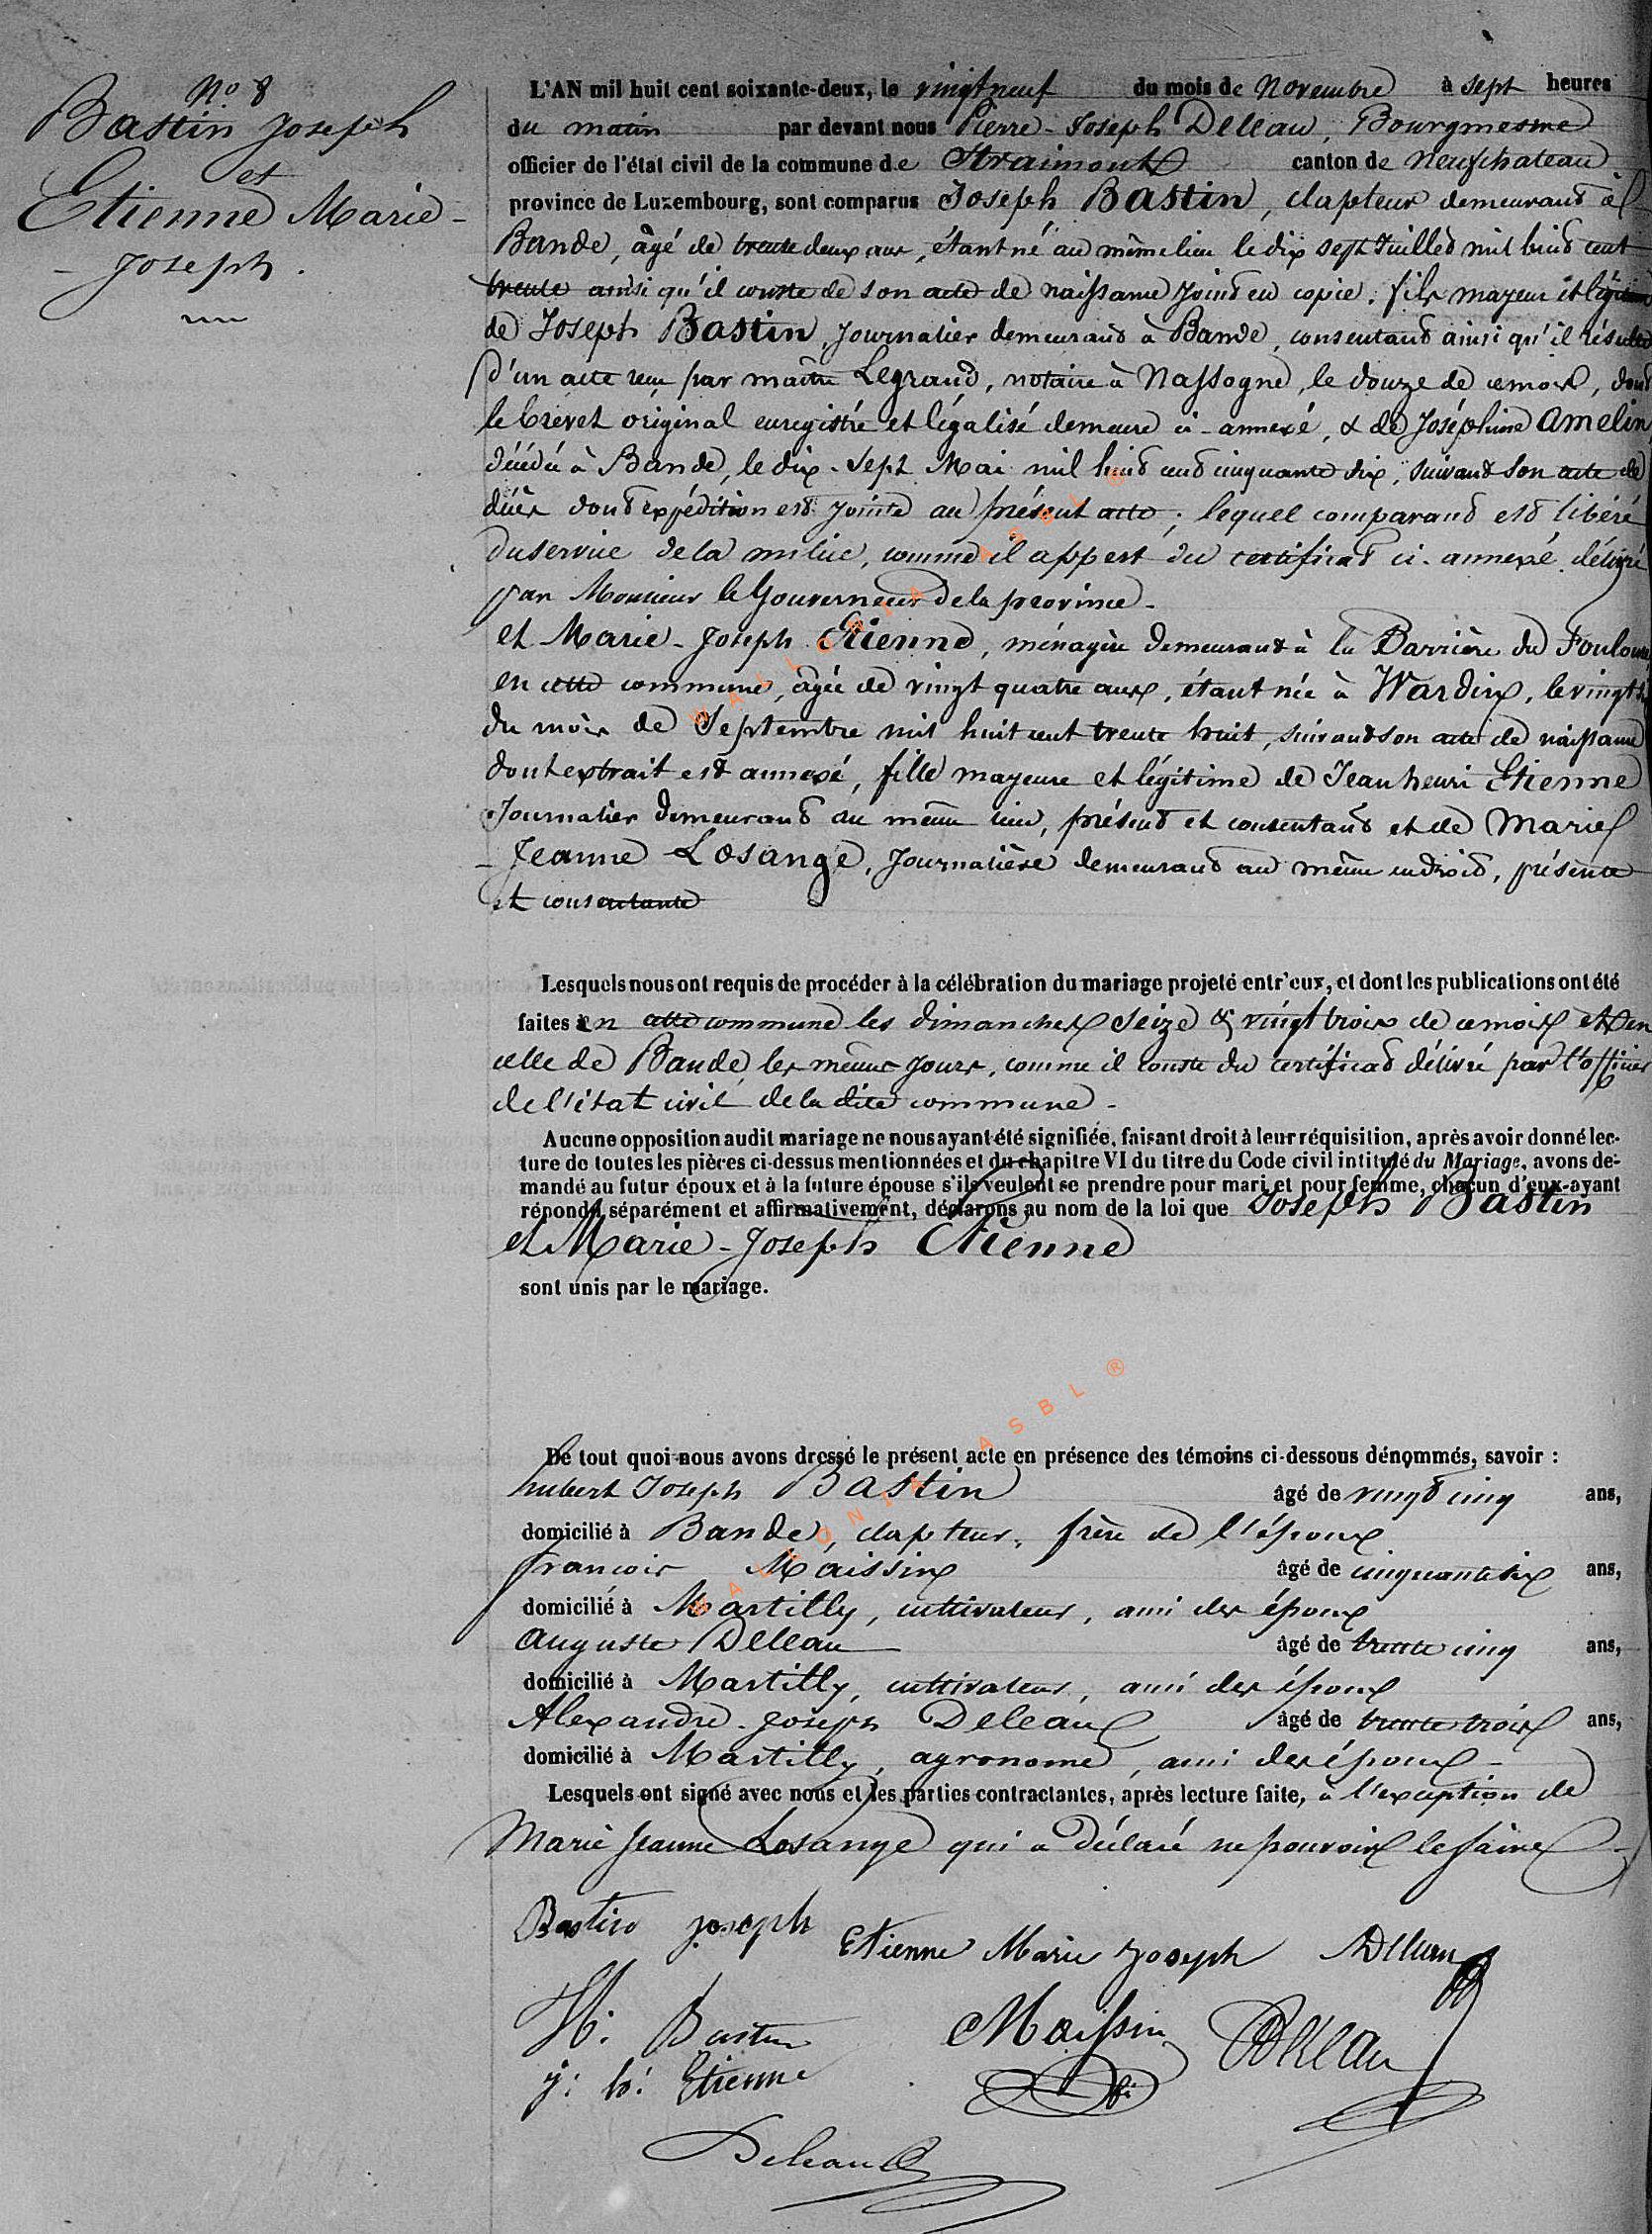 N° 8
Bastin Joseph
et
Etienne Marie-
- Joseph.
L'AN mil huit cent soixante-deux, le vingt neuf du mois de Novembre à sept heures
du matin par devant nous Pierre-Joseph Delleau, Bourgmesne
officier de l'état civil de la commune de Straimont canton de Neufchateau
province de Luxembourg, sont comparus Joseph Bastin, clapteur demeurant à
Bande, âgé de trente deux ans, étant né au même lieu le dix sept Juillet mil huit cent
trente ainsi qu'il conste de son acte de naissance joint en copie. fils majeur et légitime
de Joseph Bastin, Journalier demeurant à Bande, consentant ainsi qu'il résulte
d'un acte reçu par maître Legrand, notaire à Nassogne, le douze de ce mois, dont
le brevet original enregistré et légalisé demeure ci-annexé, & de Joséphine Amelin
décédée à Bande, le dix-sept Mai mil huit cent cinquante six, suivant son acte de
décès dont expédition est jointe au présent acte; lequel comparant est libéré
du service de la milice, comme il appert du certificat ci-annexé délivré
par Monsieur le Gouverneur de la province-
et Marie-Joseph Etienne, ménagère demeurant à la Barrière du Foulouse
en cette commune, âgée de vingt quatre ans, étant née à Wardin, le vingt
du mois de Septembre mil huit cent trente huit, suivant son acte de naissance
dont extrait est annexé, fille majeure et légitime de Jean henri Etienne
Journalier demeurant au même lieu, présent et consentant et de Marie
-Jeanne Losange, Journalière demeurant au même endroit, présente
et consentante
Lesquels nous ont requis de procéder à la célébration du mariage projeté entr'eux, et dont les publications ont été
faites en cette commune les dimanches seize & vingt trois de ce mois et en
celle de Bande les mêmes jours, comme il conste du certificat délivré par l'officier
de l'état civil de la dite commune-
Aucune opposition audit mariage ne nous ayant été signifiée, faisant droit à leur réquisition, après avoir donné lec-
ture de toutes les pièces ci-dessus mentionnées et du chapitre VI du titre du Code civil intitulé du Mariage, avons de-
mandé au futur époux et à la future épouse s'ils veulent se prendre pour mari et pour femme, chacun d'eux ayant
répondu séparément et affirmativement, déclarons au nom de la loi que Joseph Bastin
et Marie-Joseph Etienne
sont unis par le mariage.
De tout quoi nous avons dressé le présent acte en présence des témoins ci-dessous dénommés, savoir :
hubert Joseph Bastin âgé de vingt cinq ans,
domicilié à Bande, clapteur, frère de l'époux
francois Maissin âgé de cinquante six ans,
domicilié à Martilly, cultivateur, ami des époux
Auguste Delleau âgé de trente cinq ans,
domicilié à Martilly, cultivateur, ami des époux
Alexandre-Joseph Deleau âgé de trente trois ans,
domicilié à Martilly, agronome, ami des époux-
Lesquels ont signé avec nous et les parties contractantes, après lecture faite, à l'exception de
Marie Jeanne Losange qui a déclaré ne pouvoir le faire
Bastin joseph Etienne Marie Joseph ADelleau
H. Bastin Maissin Delleau
j: h: Etienne
Deleau
WALLONIA ASBL ®
WALLONIA ASBL ®